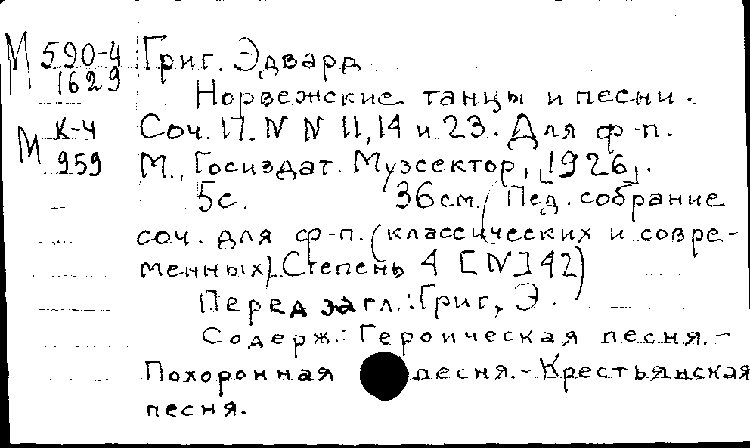 М 590-4 Григ. Эдвард
1629
Норвежские танцы и песни.
М К-4 Соч. 17. N N 11, 14 и 23. Для ф-п.
959 М., Госиздат. Музсектор, [1926].
5с. 36см. (Пед. собрание
соч. для ф-п. (классических и совре-
менных). Степень 4 [N] 42)
Перед загл.: Григ, Э.
Содерж.: Героическая песня.-
Похоронная песня.- Крестьянская
песня.